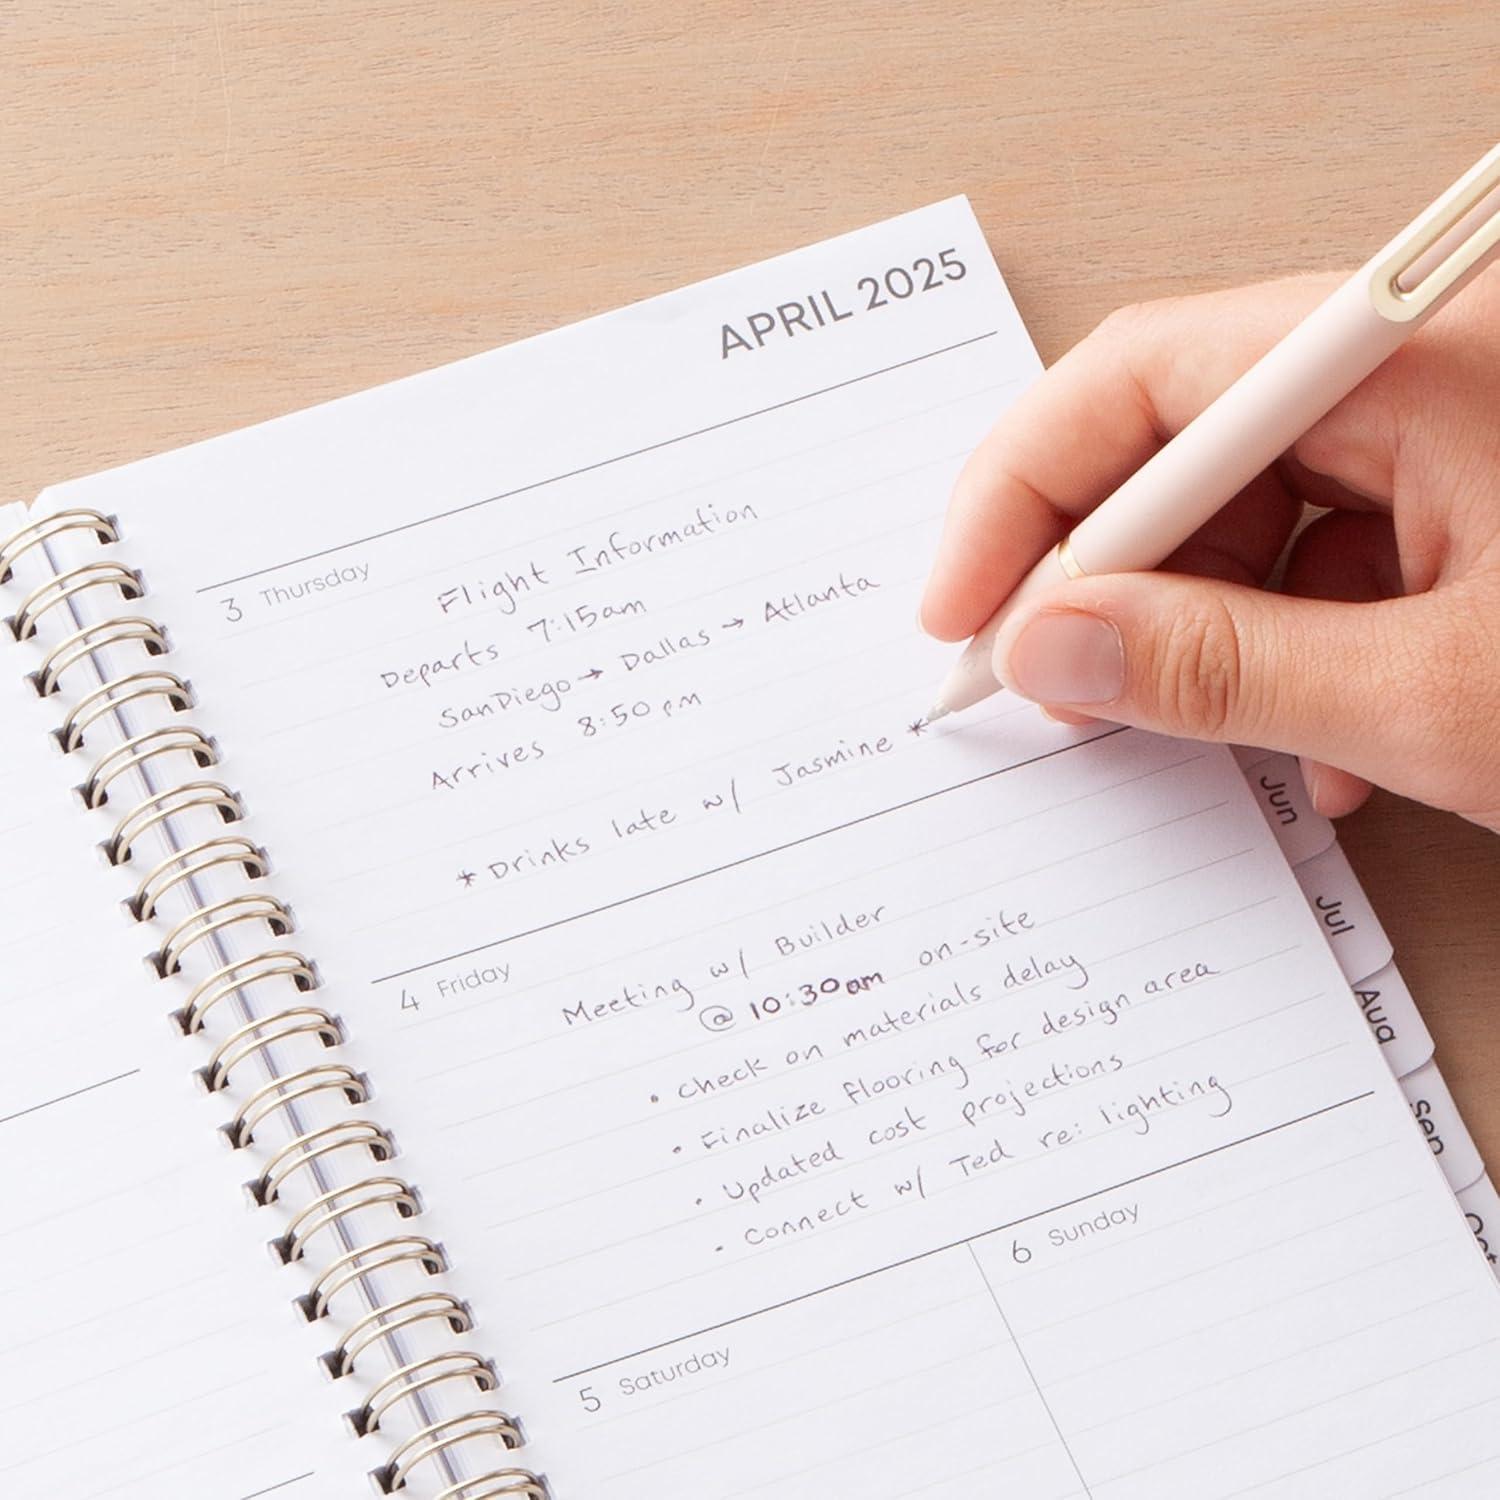 APRIL 2025
3 Thursday
Flight Information
Departs 7:15am
San Diego → Dallas → Atlanta
Arrives 8:50pm
* Drinks late w/ Jasmine *
4 Friday
Meeting w/ Builder
@ 10:30am on-site
• Check on materials delay
• Finalize flooring for design area
• Updated cost projections
• Connect w/ Ted re: lighting
5 Saturday
6 Sunday
Jun
Jul
Aug
Sep
Oct